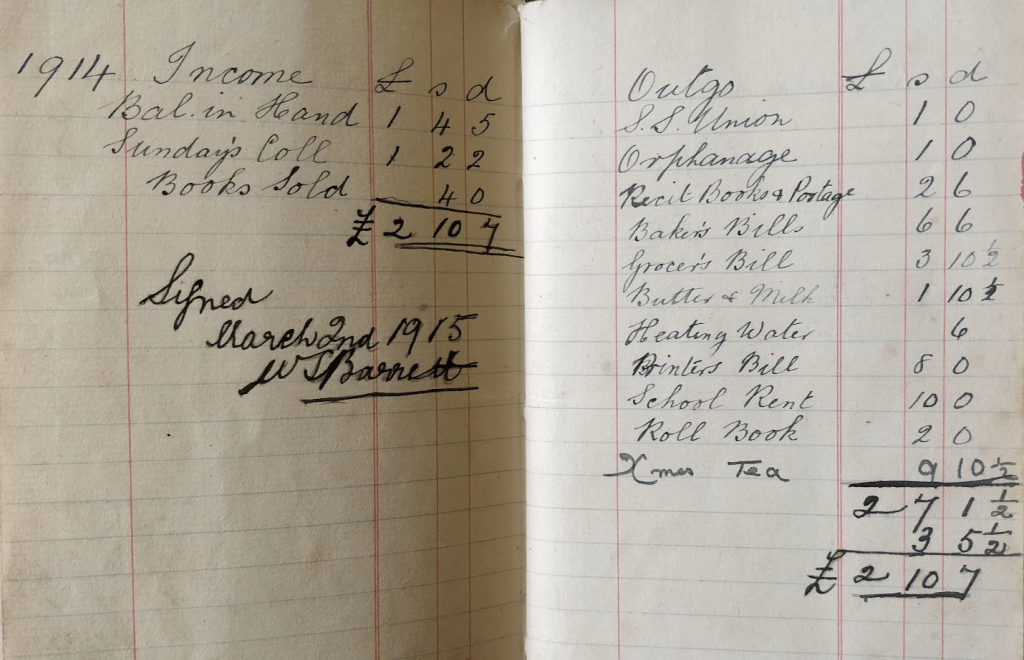 1914 Income £ s d
Bal. in Hand 1 4 5
Sunday's Coll 1 2 2
Books Sold 4 0
£ 2 10 7
Signed
March 2nd 1915
W J Barrett
Outgo £ s d
S.S. Union 1 0
Orphanage 1 0
Recit Books & Postage 2 6
Baker's Bills 6 6
Grocer's Bill 3 10 ½
Butter & Milk 1 10 ½
Heating Water 6
Printers Bill 8 0
School Rent 10 0
Roll Book 2 0
Xmas Tea 9 10 ½
2 7 1 ½
3 5 ½
£ 2 10 7